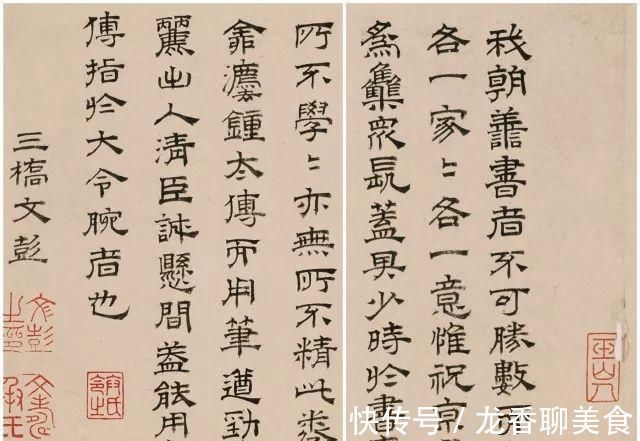 我朝善書者不可勝數
各一家々各一意惟祝京
為集衆長蓋其少時於書
所不學々亦無所不精此卷
灋鍾太傅而用筆遒勁
麗之人清臣誠懸間蓋能用
傅指於大令腕者也
三橋文彭
文彭之印
快传号 / 龙香聊美食